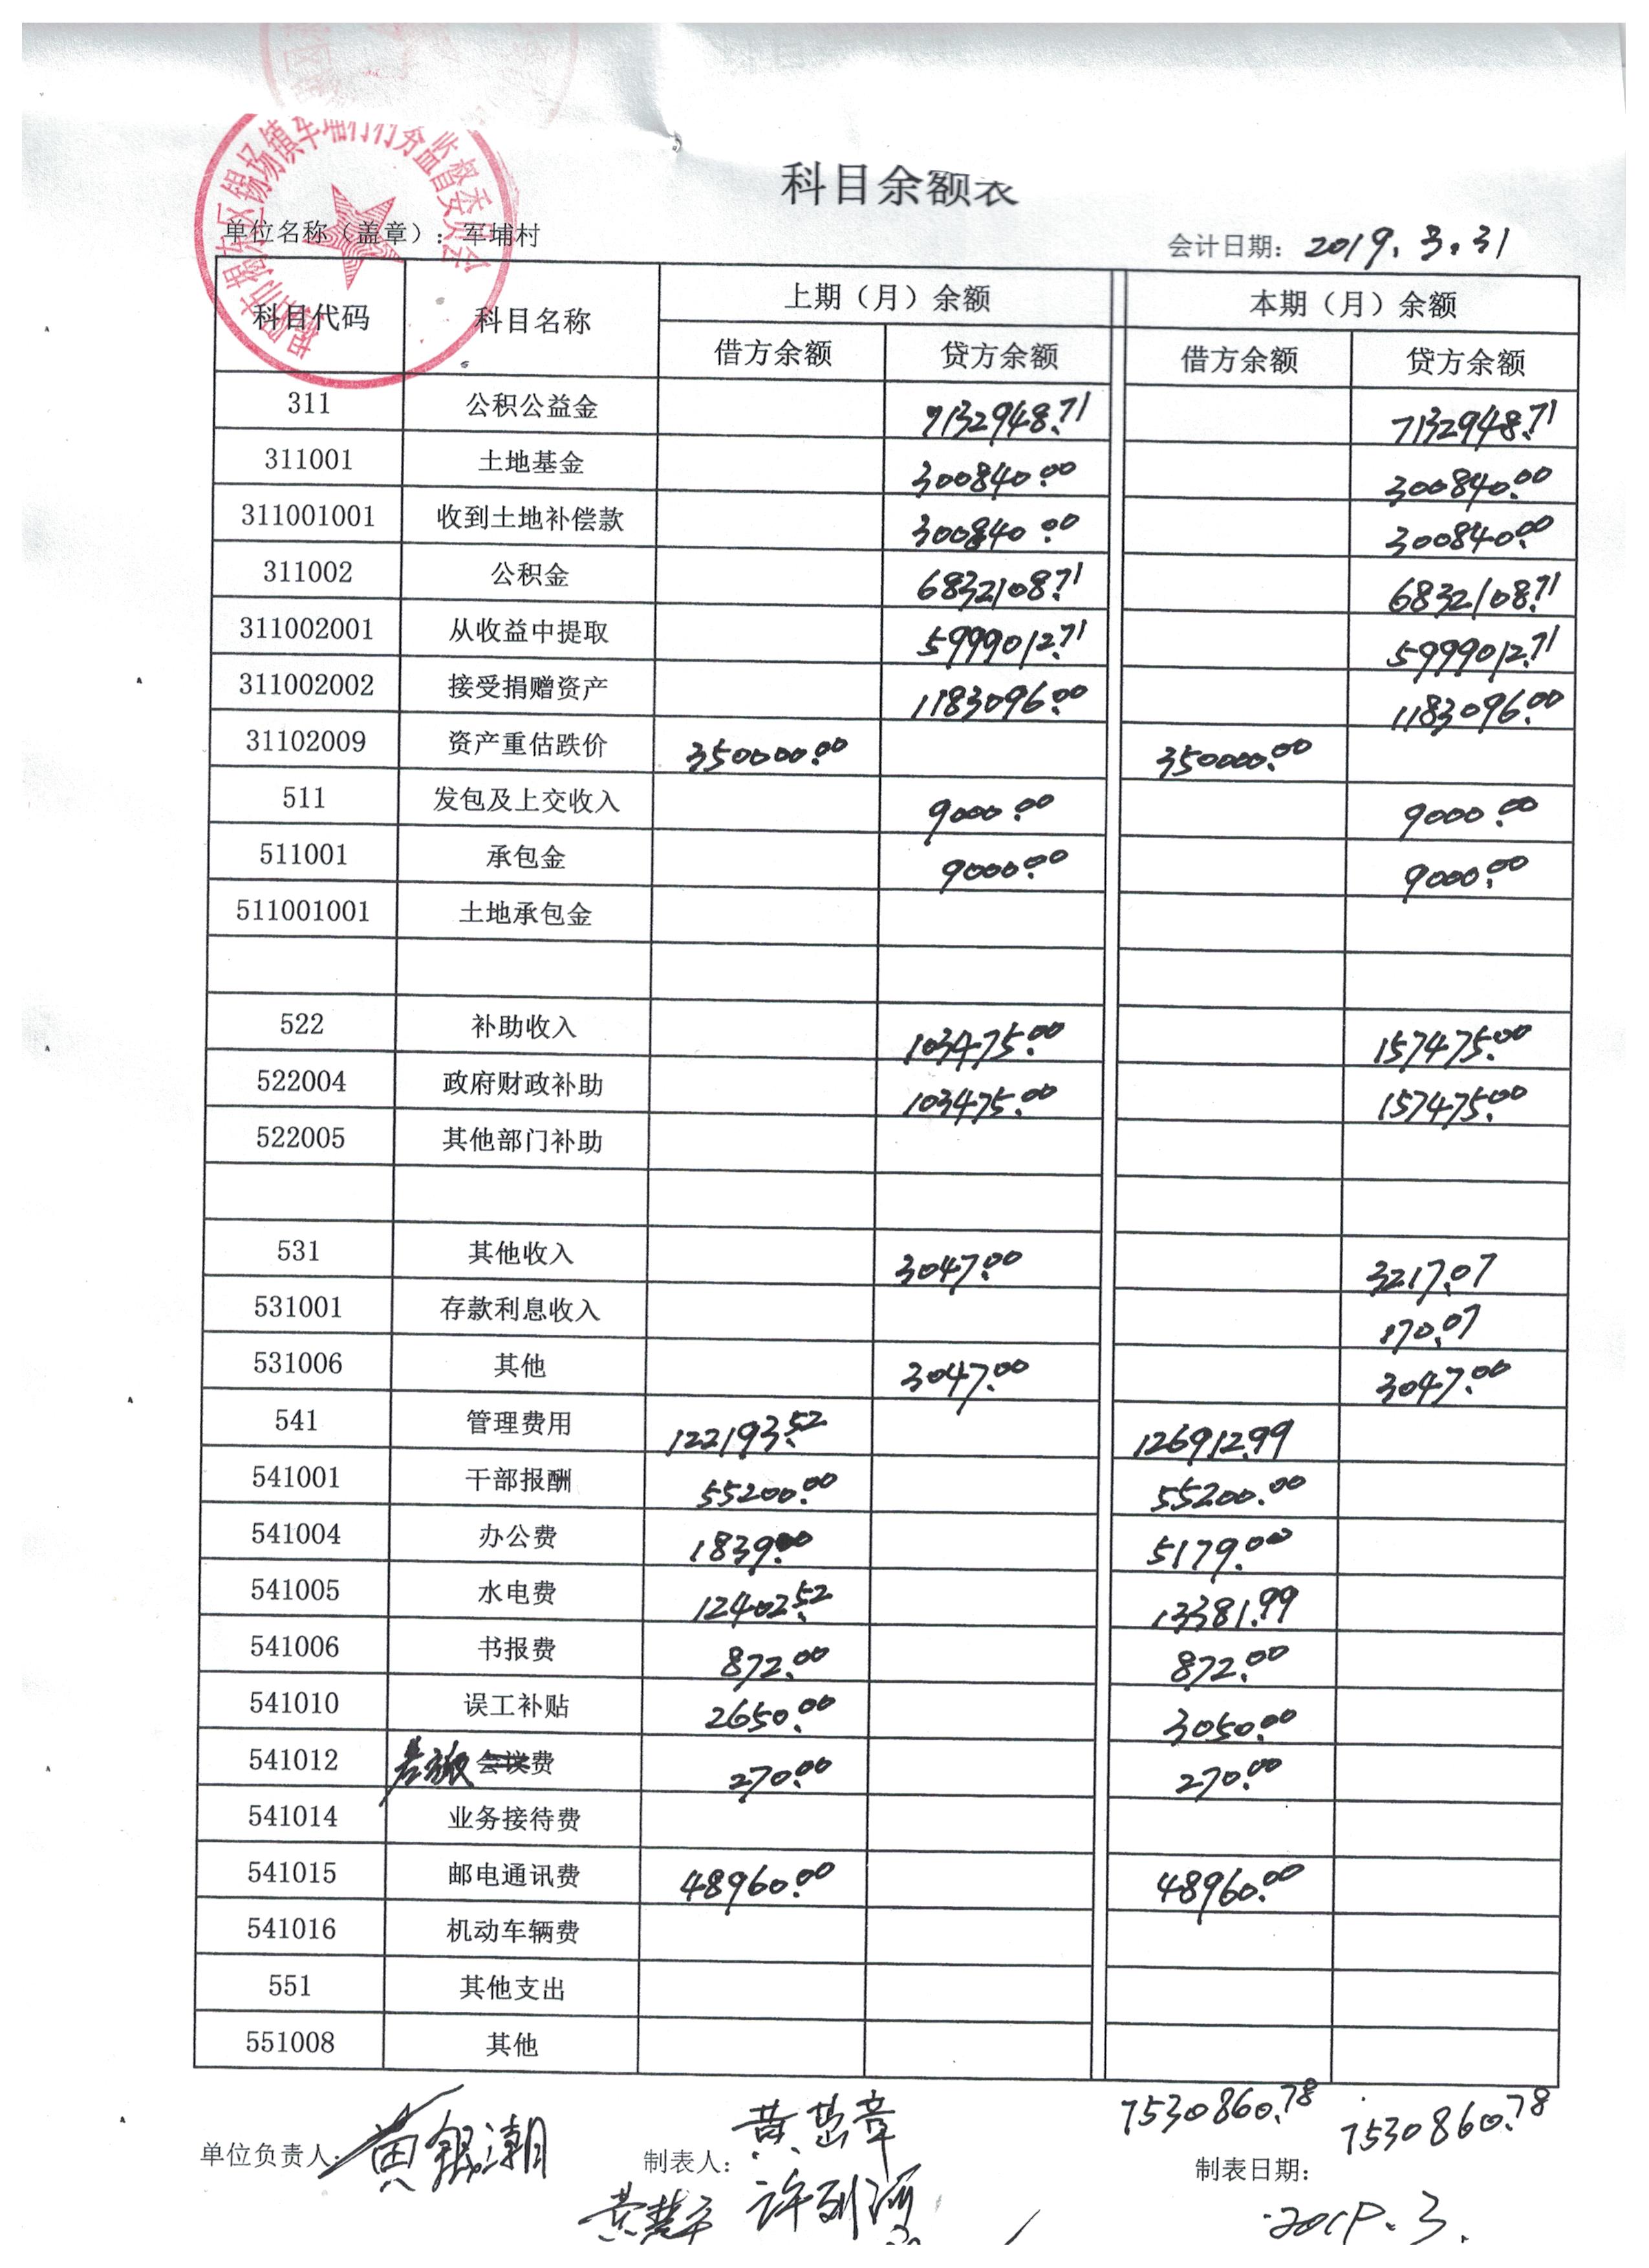 科目余额表
揭阳市揭东区锡场镇军埔村村务监督委员会
单位名称（盖章）：军埔村 会计日期：2019.3.31
科目代码 科目名称 上期（月）余额 本期（月）余额
借方余额 贷方余额 借方余额 贷方余额
311 公积公益金 7132948.71 7132948.71
311001 土地基金 300840.00 300840.00
311001001 收到土地补偿款 300840.00 300840.00
311002 公积金 6832108.71 6832108.71
311002001 从收益中提取 5999012.71 5999012.71
311002002 接受捐赠资产 1183096.00 1183096.00
31102009 资产重估跌价 350000.00 350000.00
511 发包及上交收入 9000.00 9000.00
511001 承包金 9000.00 9000.00
511001001 土地承包金
522 补助收入 103475.00 157475.00
522004 政府财政补助 103475.00 157475.00
522005 其他部门补助
531 其他收入 3047.00 3217.07
531001 存款利息收入 170.07
531006 其他 3047.00 3047.00
541 管理费用 122193.52 126912.99
541001 干部报酬 55200.00 55200.00
541004 办公费 1839.00 5179.00
541005 水电费 12402.52 13381.99
541006 书报费 872.00 872.00
541010 误工补贴 2650.00 3050.00
541012 差旅费 270.00 270.00
541014 业务接待费
541015 邮电通讯费 48960.00 48960.00
541016 机动车辆费
551 其他支出
551008 其他
7530860.78 7530860.78
单位负责人：黄锟潮 制表人： 制表日期：
2019.3.